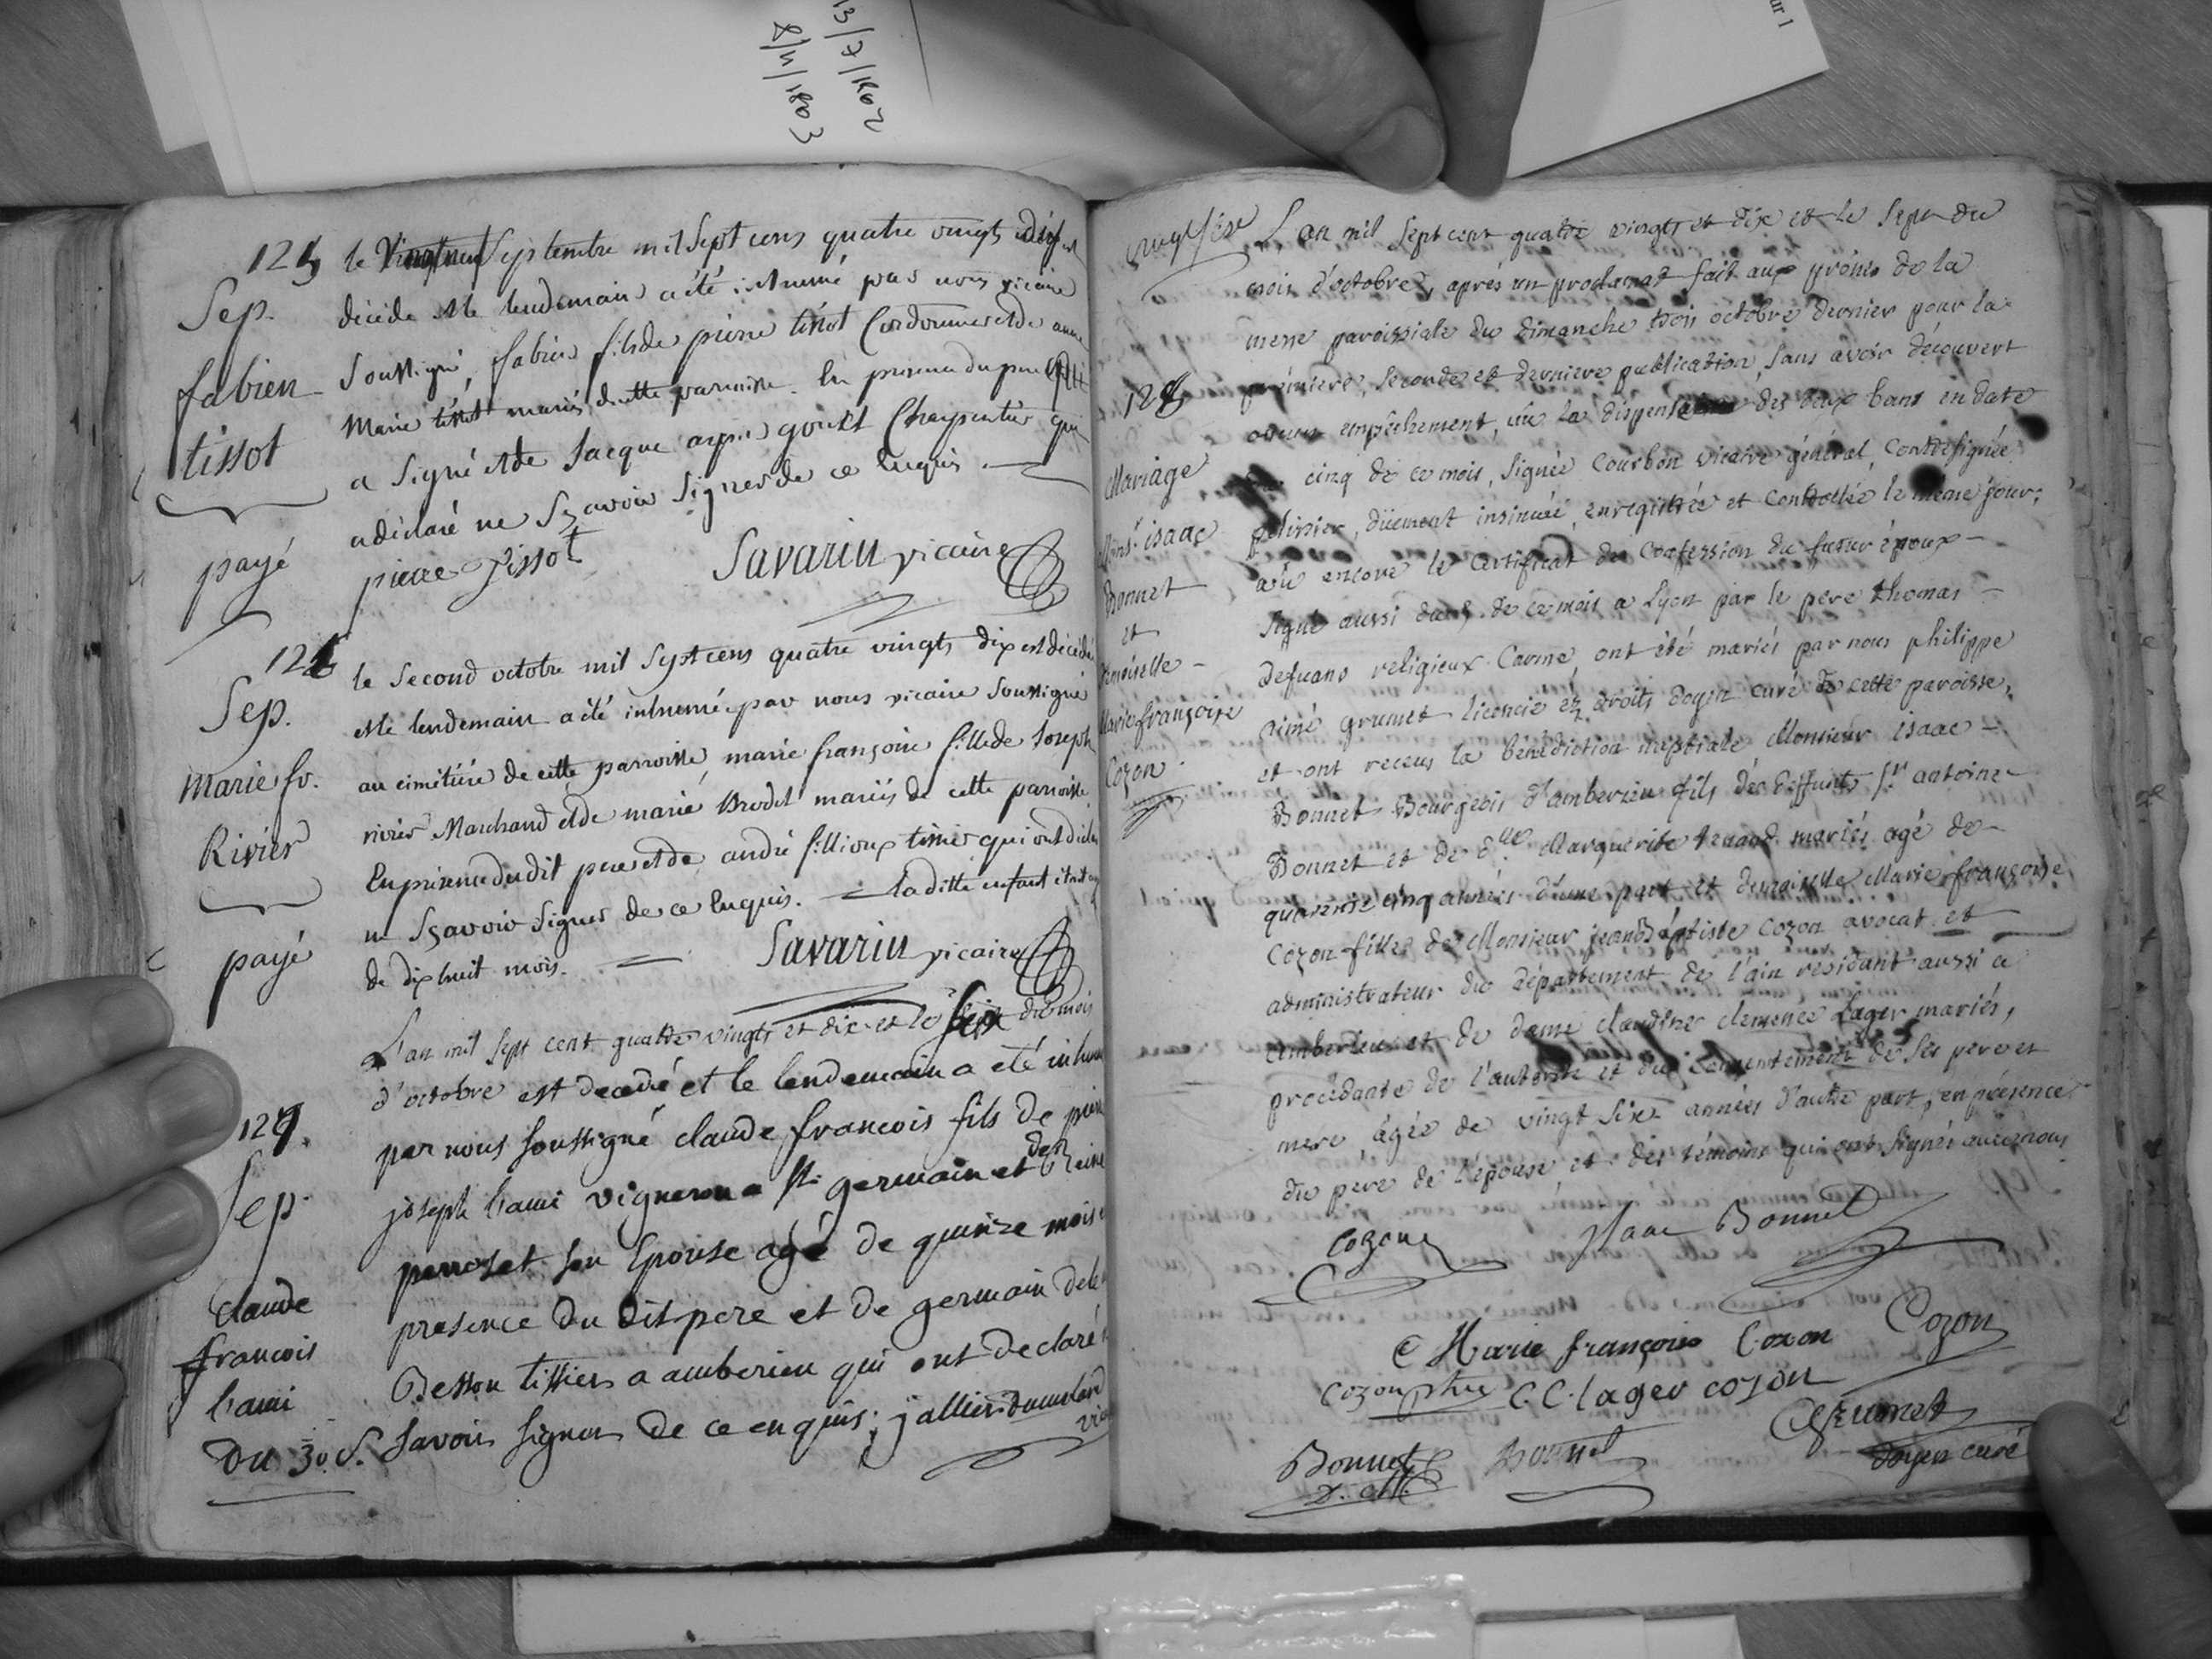 13/7/1802
8/4/1803
ur 1
125
Sep.
fabien
tissot
payé
le Septembre mil Sept cens quatre vingts dix est
décédé et le lendemain a été inhumé par nous vicaire
Soussigné, fabien fils de pierre tissot Cordonnier et de anne
Marie tissot mariés de cette parroisse. En présence du père
a signé et de Jacque Charpentier qui
a déclaré ne Sçavoir Signer de ce Enquis.
pierre Tissot Savarin vicaire
126
Sep.
Marie fr.
Rivier
payé
le Second octobre mil Sept cens quatre vingts dix est décédée
et le lendemain a été inhumée par nous vicaire Soussigné
au cimitière de cette parroisse, marie françoise fille de Joseph
rivier Marchand et de marie Brodet mariés de cette parroisse
En présence du dit père et de andré fillioux tissier qui ont déclaré
ne Sçavoir Signer de ce Enquis. = la ditte enfant étoit
de dix huit mois. = Savarin vicaire
127.
Sep.
Claude
francois
l'ami
Du 30 S.
L'an mil Sept cent quatre vingts et dix et le Six du mois
d'octobre est decedé et le lendemain a eté inhum
par nous soussigné claude francois fils de pierre
joseph l'ami vigneron a St. germain et de Reine
perroset son Epouse agé de quinze mois
presence du dit pere et de germain
Besson tissier a amberieu qui ont declaré
savoir signer de ce enquis; j allier dumolard
vic
128
Mariage
Mons.r isaac
Bonnet
et
demoiselle
Marie françoise
Cozon
L'an mil Sept cent quatre vingts et dix et le Sept du
mois d'octobre, après un proclamat fait au prône de la
messe paroissiale du dimanche trois octobre dernier pour la
première, seconde et derniere publication, sans avoir découvert
aucun empêchement, vu la dispense des deux bans en date
du cinq de ce mois, signée Courbon vicaire général, contresignée
pelissier, düement insinuée, enregistrée et controllée le même jour;
vu encore le Certificat de Confession du futur époux
signé aussi du 5 de ce mois a Lyon par le pere thomas
religieux Carme, ont été mariés par nous philippe
aimé grumet licencié ez droits doyen curé de cette paroisse,
et ont receus la bénédiction nuptiale Monsieur isaac
Bonnet Bourgeois d'amberieu fils des deffunts Sr. antoine
Bonnet et de dlle. Marguerite mariés agé de
quarente cinq années d'une part et demoiselle Marie françoise
Cozon fille de Monsieur jean Baptiste Cozon avocat et
administrateur du département de l'ain residant aussi a
amberieu et de dame claudine clemence Lager mariés,
procédante de l'autorité et du consentement de ses pere et
mere, âgée de vingt six années d'autre part, en présence
du pere de l'épouse et des témoins qui ont signés avec nous
Cozon Isaac Bonnet
Marie françoise Cozon Cozon
Cozon ptre C. C. lager cozon
Bonnet D. M. Bonnet Grumet
doyen curé